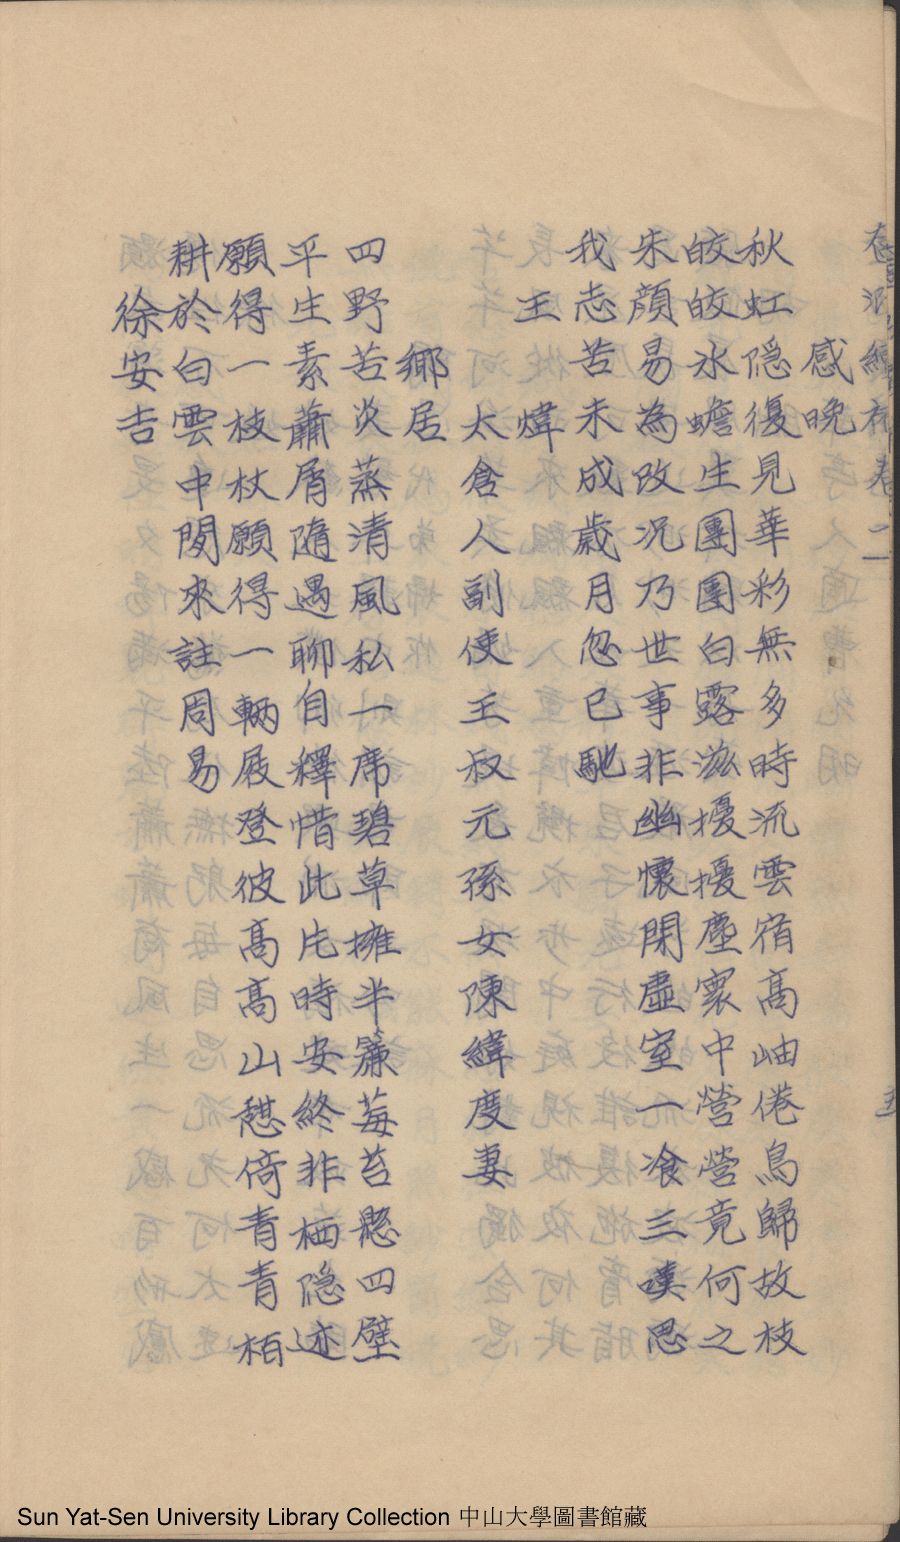 卷二
感晚
秋虹隱復見華彩無多時流雲宿高岫倦鳥歸故枝
皎皎水蟾生團團白露滋擾擾塵寰中營營竟何之
朱顏易為改况乃世事非幽懷閉虛室一飡三嘆思
我志苦未成歲月忽已馳
王煒
太倉人副使王叔元孫女陳緯度妻
鄉居
四野苦炎蒸清風私一席碧草擁半簾莓苔懸四壁
平生素蕭屑隨遇聊自釋惜此片時安終非栖隱迹
願得一枝杖願得一輛屐登彼高高山憇倚青青栢
耕於白雲中閒來註周易
徐安吉
Sun Yat-Sen University Library Collection 中山大學圖書館藏